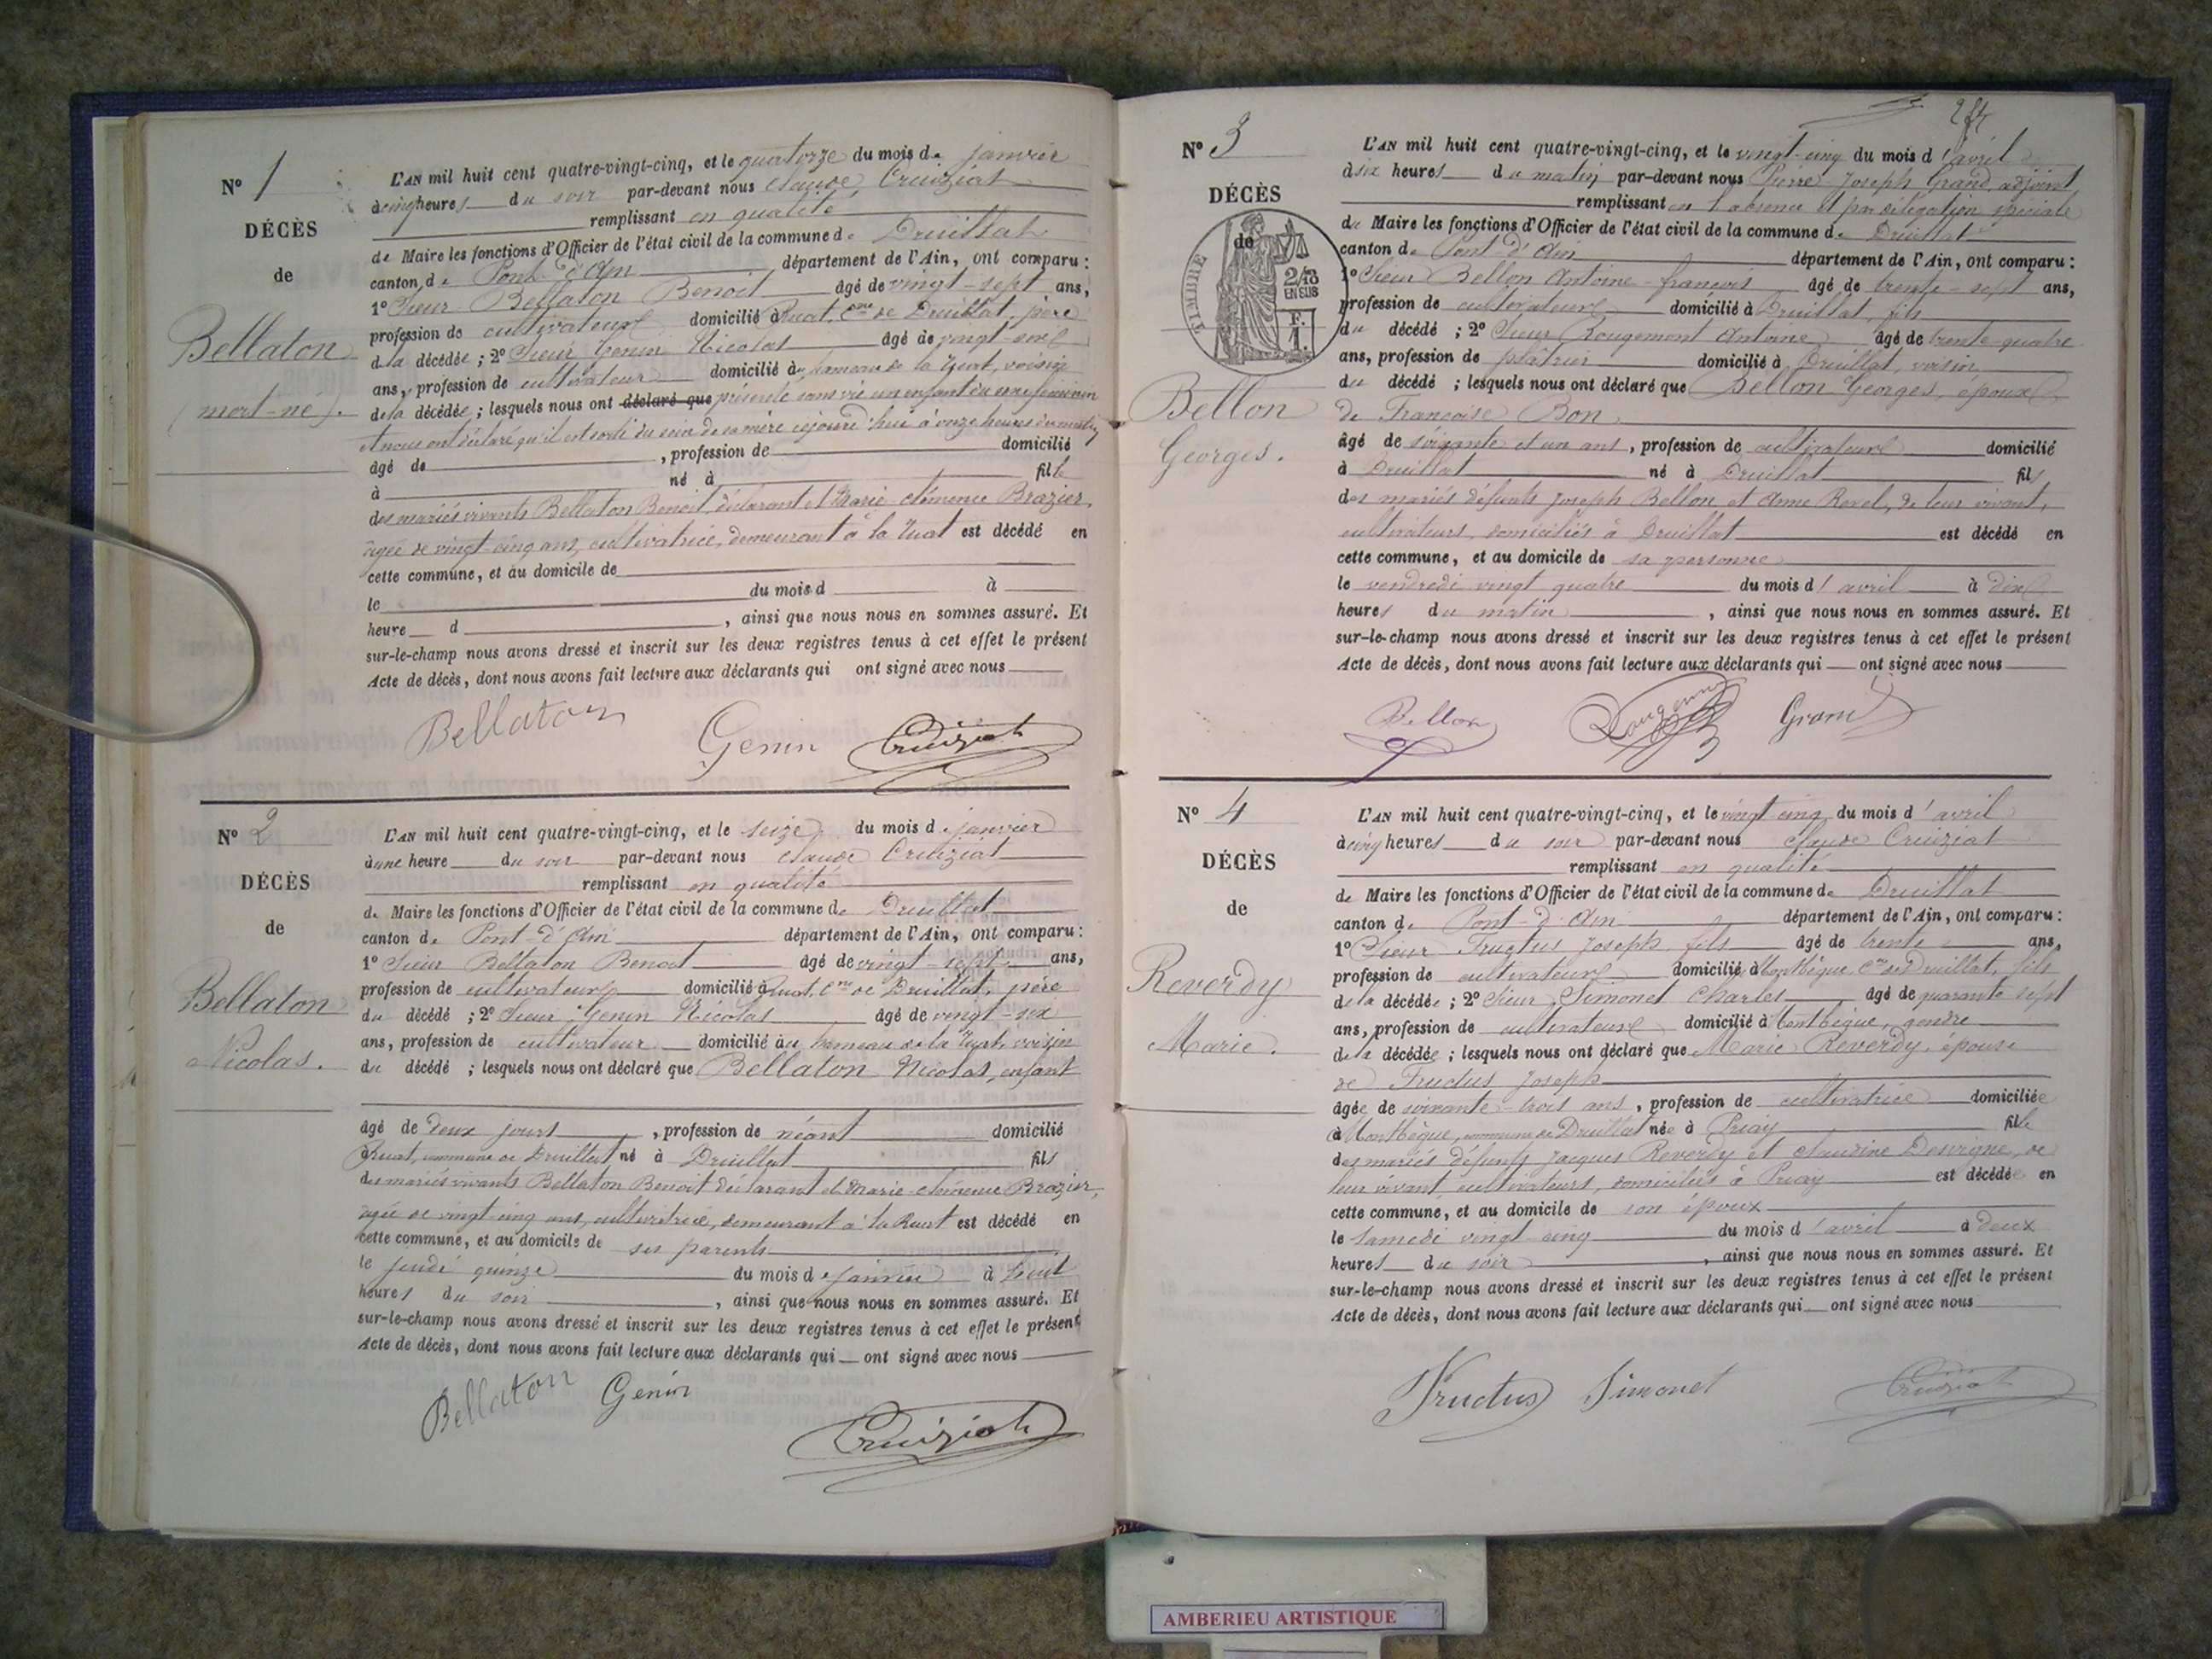 N° 1
DÉCÈS
de
Bellaton
(mort-né).
L'AN mil huit cent quatre-vingt-cinq, et le quatorze du mois de janvier
à cinq heures du soir par-devant nous Claude Cruiziat
remplissant en qualité
de Maire les fonctions d'Officier de l'état civil de la commune de Druillat
canton de Pont-d'Ain département de l'Ain, ont comparu :
1° Sieur Bellaton Benoit âgé de vingt-sept ans,
profession de cultivateur domicilié à Ruat, Cne de Druillat, père
de la décédée ; 2° Sieur Genin Nicolas âgé de vingt-six
ans, profession de cultivateur domicilié au hameau de la Ruat, voisin
de la décédée ; lesquels nous ont déclaré que présenté sans vie un enfant du sexe féminin
et nous ont déclaré qu'il est sorti du sein de sa mère cejourd'hui à onze heures du matin
âgé de , profession de domicilié
à né à fille
des mariés vivants Bellaton Benoit déclarant et Marie-Clémence Brazier,
âgée de vingt-cinq ans, cultivatrice, demeurant à la Ruat est décédé en
cette commune, et au domicile de
le du mois d à
heure d , ainsi que nous nous en sommes assuré. Et
sur-le-champ nous avons dressé et inscrit sur les deux registres tenus à cet effet le présent
Acte de décès, dont nous avons fait lecture aux déclarants qui ont signé avec nous
Bellaton Genin Cruiziat
N° 2
DÉCÈS
de
Bellaton
Nicolas.
L'AN mil huit cent quatre-vingt-cinq, et le seize du mois de janvier
à une heure du soir par-devant nous Claude Cruiziat
remplissant en qualité
de Maire les fonctions d'Officier de l'état civil de la commune de Druillat
canton de Pont-d'Ain département de l'Ain, ont comparu :
1° Sieur Bellaton Benoit âgé de vingt-sept ans,
profession de cultivateur domicilié à Ruat, Cne de Druillat, père
du décédé ; 2° Sieur Genin Nicolas âgé de vingt-six
ans, profession de cultivateur domicilié au hameau de la Ruat, voisin
du décédé ; lesquels nous ont déclaré que Bellaton Nicolas, enfant
âgé de deux jours , profession de néant domicilié
à Ruat, commune de Druillat né à Druillat fils
des mariés vivants Bellaton Benoit déclarant et Marie-Clémence Brazier,
âgée de vingt-cinq ans, cultivatrice, demeurant à la Ruat est décédé en
cette commune, et au domicile de ses parents
le jeudi quinze du mois de janvier à huit
heures du soir , ainsi que nous nous en sommes assuré. Et
sur-le-champ nous avons dressé et inscrit sur les deux registres tenus à cet effet le présent
Acte de décès, dont nous avons fait lecture aux déclarants qui ont signé avec nous
Bellaton Genin
Cruiziat
N° 3
DÉCÈS
de
TIMBRE
2/10
EN SUS
F.
1.
Bellon
Georges.
L'AN mil huit cent quatre-vingt-cinq, et le vingt-cinq du mois d'avril
à six heures du matin par-devant nous Pierre-Joseph Grand, adjoint,
remplissant en l'absence et par délégation spéciale
du Maire les fonctions d'Officier de l'état civil de la commune de Druillat
canton de Pont-d'Ain département de l'Ain, ont comparu :
1° Sieur Bellon Antoine-françois âgé de trente-sept ans,
profession de cultivateur domicilié à Druillat, fils
du décédé ; 2° Sieur Rougemont Antoine âgé de trente-quatre
ans, profession de plâtrier domicilié à Druillat, voisin
du décédé ; lesquels nous ont déclaré que Bellon Georges, époux
de Françoise Bon
âgé de soixante et un ans, profession de cultivateur domicilié
à Druillat né à Druillat fils
des mariés défunts Joseph Bellon et Anne Revel, de leur vivant,
cultivateurs, domiciliés à Druillat est décédé en
cette commune, et au domicile de sa personne
le vendredi vingt quatre du mois d'avril à dix
heures du matin , ainsi que nous nous en sommes assuré. Et
sur-le-champ nous avons dressé et inscrit sur les deux registres tenus à cet effet le présent
Acte de décès, dont nous avons fait lecture aux déclarants qui ont signé avec nous
Bellon Rougemont Grand
N° 4
DÉCÈS
de
Reverdy
Marie.
L'AN mil huit cent quatre-vingt-cinq, et le vingt cinq du mois d'avril
à cinq heures du soir par-devant nous Claude Cruiziat
remplissant en qualité
de Maire les fonctions d'Officier de l'état civil de la commune de Druillat
canton de Pont-d'Ain département de l'Ain, ont comparu :
1° Sieur Fructus Joseph fils âgé de trente ans,
profession de cultivateur domicilié à Montbègue, Cne de Druillat, fils
de la décédée ; 2° Sieur Simonet Charles âgé de quarante sept
ans, profession de cultivateur domicilié à Montbègue, gendre
de la décédée ; lesquels nous ont déclaré que Marie Reverdy, épouse
de Fructus Joseph
âgée de soixante-trois ans, profession de cultivatrice domiciliée
à Montbègue, commune de Druillat née à Priay fille
des mariés défunts Jacques Reverdy et Claudine Desvigne, de
leur vivant, cultivateurs, domiciliés à Priay est décédée en
cette commune, et au domicile de son époux
le samedi vingt-cinq du mois d'avril à deux
heures du soir , ainsi que nous nous en sommes assuré. Et
sur-le-champ nous avons dressé et inscrit sur les deux registres tenus à cet effet le présent
Acte de décès, dont nous avons fait lecture aux déclarants qui ont signé avec nous
Fructus Simonet Cruiziat
AMBERIEU ARTISTIQUE